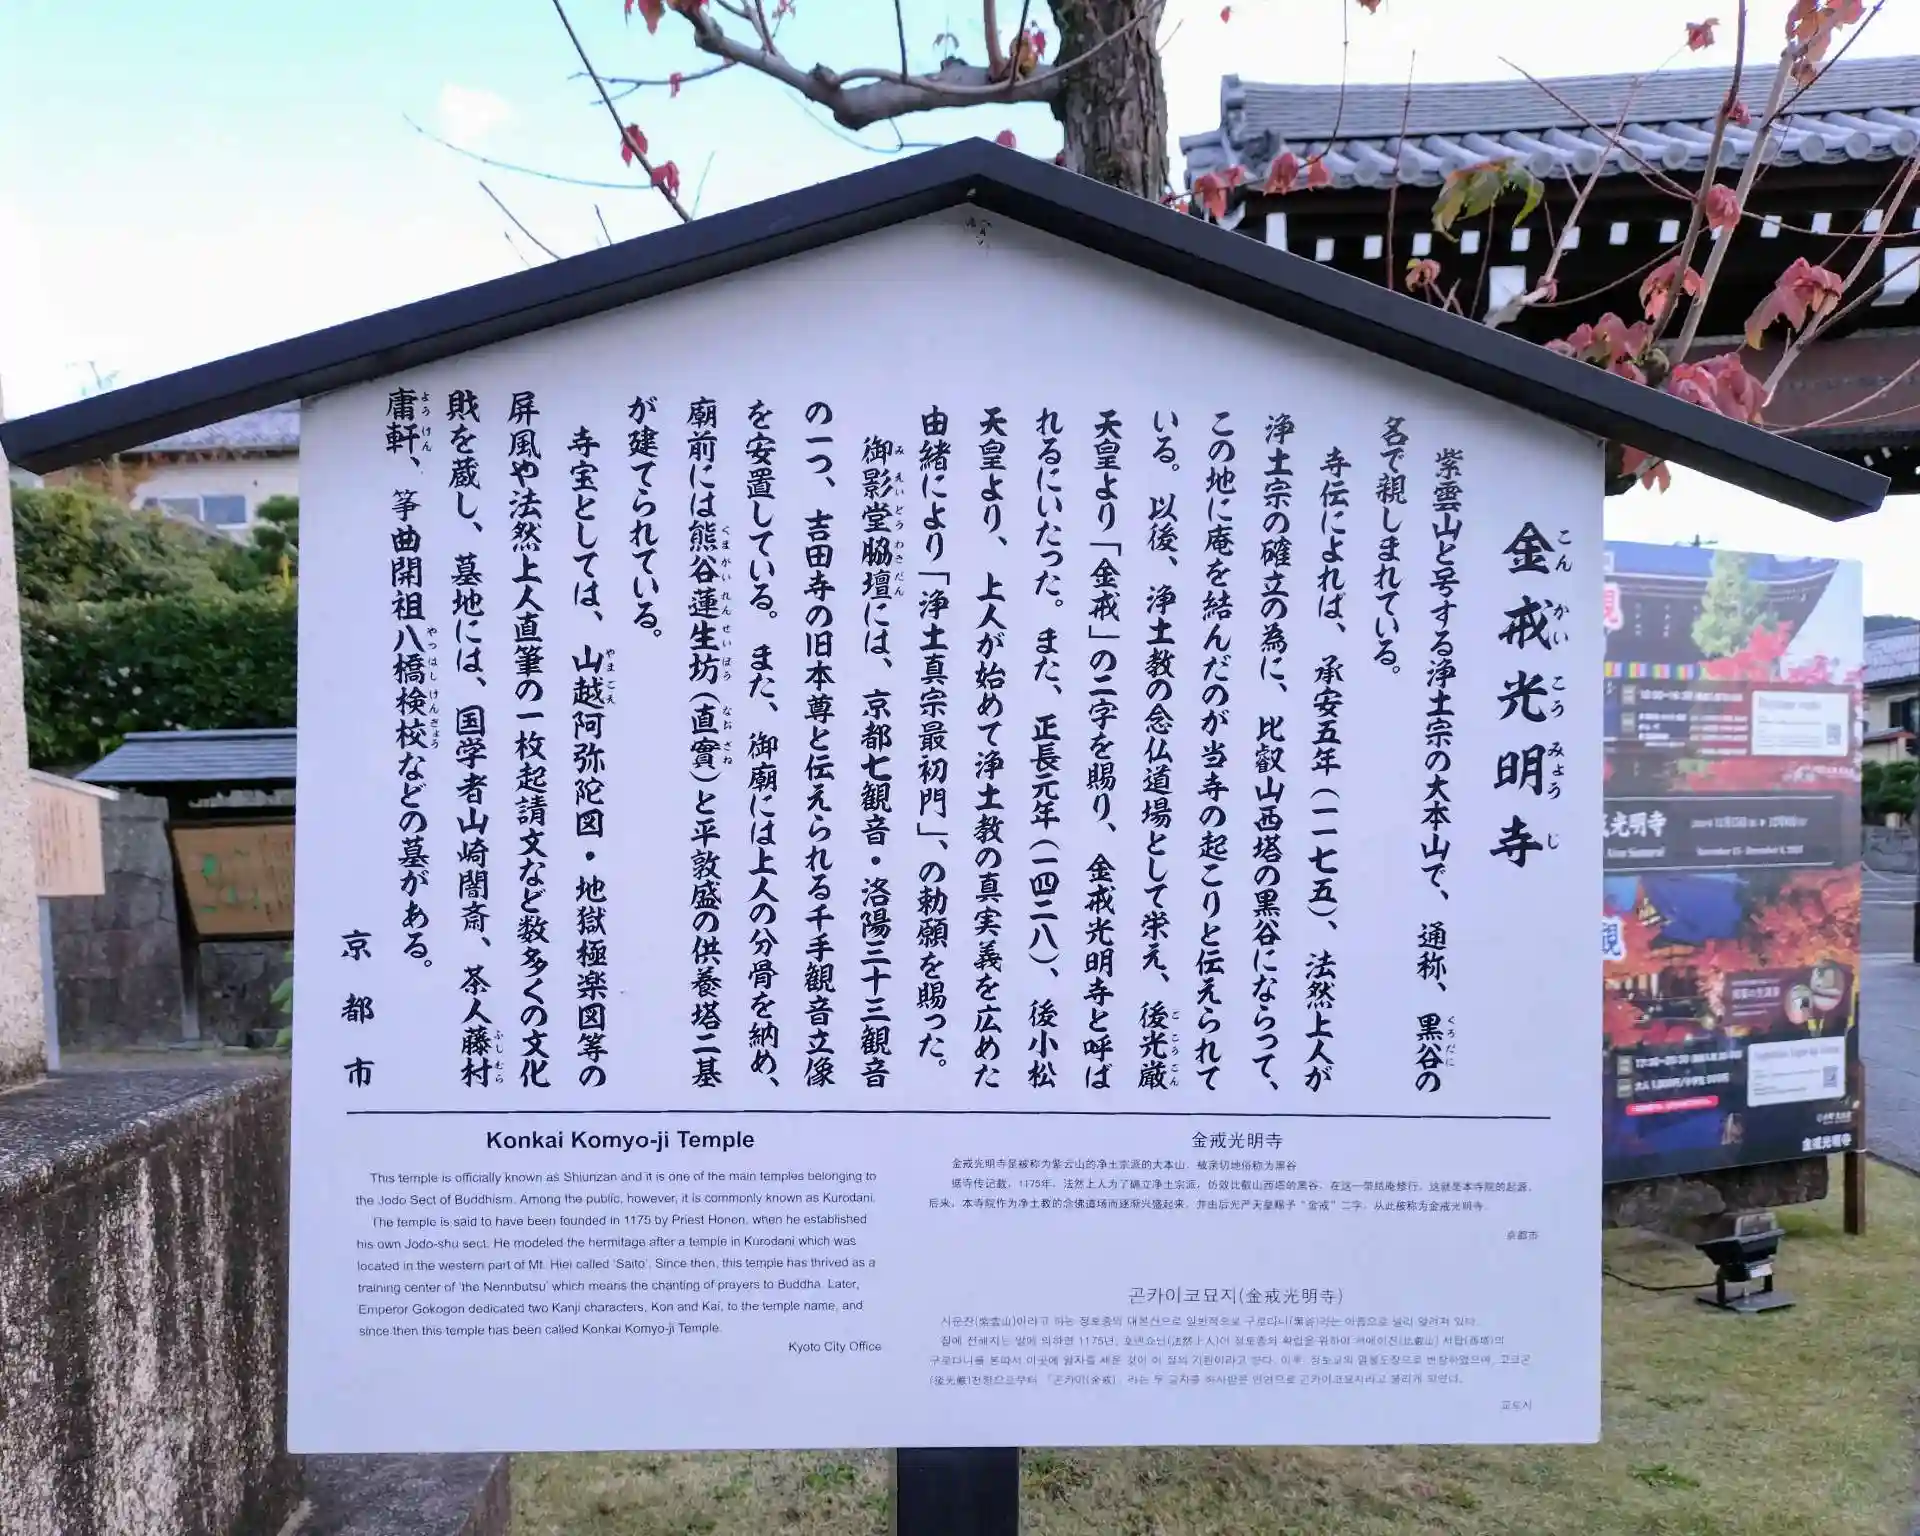 金戒光明寺
こんかいこうみょうじ
紫雲山と号する浄土宗の大本山で、通称、黒谷の
くろだに
名で親しまれている。
寺伝によれば、承安五年(一一七五)、法然上人が
浄土宗の確立の為に、比叡山西塔の黒谷にならって、
この地に庵を結んだのが当寺の起こりと伝えられて
いる。以後、浄土教の念仏道場として栄え、後光厳
ごこうごん
天皇より「金戒」の二字を賜り、金戒光明寺と呼ば
れるにいたった。また、正長元年(一四二八)、後小松
天皇より、上人が始めて浄土教の真実義を広めた
由緒により「浄土真宗最初門」、の勅願を賜った。
御影堂脇壇には、京都七観音・洛陽三十三観音
みえいどうわきだん
の一つ、吉田寺の旧本尊と伝えられる千手観音立像
を安置している。また、御廟には上人の分骨を納め、
廟前には熊谷蓮生坊(直實)と平敦盛の供養塔二基
くまがいれんせいぼう なおざね
が建てられている。
寺宝としては、山越阿弥陀図・地獄極楽図等の
やまごえ
屏風や法然上人直筆の一枚起請文など数多くの文化
財を蔵し、墓地には、国学者山崎闇斎、茶人藤村
ふじむら
庸軒、箏曲開祖八橋検校などの墓がある。
ようけん やつはしけんぎょう
京都市
Konkai Komyo-ji Temple
This temple is officially known as Shiunzan and it is one of the main temples belonging to
the Jodo Sect of Buddhism. Among the public, however, it is commonly known as Kurodani.
The temple is said to have been founded in 1175 by Priest Honen, when he established
his own Jodo-shu sect. He modeled the hermitage after a temple in Kurodani which was
located in the western part of Mt. Hiei called 'Saito'. Since then, this temple has thrived as a
training center of 'the Nennbutsu' which means the chanting of prayers to Buddha. Later,
Emperor Gokogon dedicated two Kanji characters, Kon and Kai, to the temple name, and
since then this temple has been called Konkai Komyo-ji Temple.
Kyoto City Office
金戒光明寺
金戒光明寺是被称为紫云山的净土宗派的大本山，被亲切地俗称为黑谷
据寺传记载，1175年，法然上人为了确立净土宗派，仿效比叡山西塔的黑谷，在这一带结庵修行，这就是本寺院的起源。
后来，本寺院作为净土教的念佛道场而逐渐兴盛起来，并由后光严天皇赐予“金戒”二字，从此被称为金戒光明寺。
京都市
곤카이코묘지(金戒光明寺)
시운잔(紫雲山)이라고 하는 정토종의 대본산으로 일반적으로 구로다니(黒谷)라는 이름으로 널리 알려져 있다.
절에 전해지는 말에 의하면 1175년, 호넨쇼닌(法然上人)이 정토종의 확립을 위하여 히에이잔(比叡山) 서탑(西塔)의
구로다니를 본따서 이곳에 암자를 세운 것이 이 절의 기원이라고 한다. 이후, 정토교의 염불도장으로 번창하였으며, 고코곤
(後光厳)천황으로부터 「곤카이(金戒)」라는 두 글자를 하사받은 인연으로 곤카이코묘지라고 불리게 되었다.
교토시
光明寺
金戒光明寺